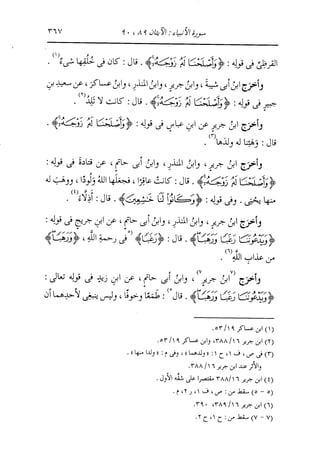 سورة الأنبياء: الآيتان ٨٩، ٩٠ ٣٦٧
القرظىِّ فى قولِه: ﴿وَأَصْلَحْنَا لَهُ زَوْجَهُ﴾. قال: كان فى خُلُقِها شىءٌ(١).
وأخرَج ابنُ أبى شيبةَ، وابنُ جريرٍ، وابنُ المنذرِ، وابنُ عساكرَ، عن سعيدِ بنِ
جبيرٍ فى قولِه: ﴿وَأَصْلَحْنَا لَهُ زَوْجَهُ﴾. قال: كانت لا تَلِدُ(٢).
وأخرَج ابنُ جريرٍ عن ابنِ عباسٍ فى قولِه: ﴿وَأَصْلَحْنَا لَهُ زَوْجَهُ﴾.
قال: وهَبْنا له ولدَها(٣).
وأخرَج ابنُ جريرٍ، وابنُ المنذرِ، وابنُ أبى حاتمٍ، عن قتادةَ فى قولِه:
﴿وَأَصْلَحْنَا لَهُ زَوْجَهُ﴾. قال: كانت عاقرًا، فجعَلها اللهُ ولُودًا، ووهَب له
منها يحيى. وفى قولِه: ﴿وَكَانُوا لَنَا خَاشِعِينَ﴾. قال: أذلاءَ(٤).
وأخرَج ابنُ جريرٍ، وابنُ المنذرِ، وابنُ أبى حاتمٍ، عن ابنِ جريجٍ فى قولِه:
﴿وَيَدْعُونَنَا رَغَبًا وَرَهَبًا﴾. قال: ﴿رَغَبًا﴾ (٥فى رحمةِ اللهِ، ﴿وَرَهَبًا﴾
من عذابِ اللهِ(٦).
وأخرَج (٧ابنُ جريرٍ٧)، وابنُ أبى حاتمٍ، عن ابنِ زيدٍ فى قولِه تعالى:
﴿وَيَدْعُونَنَا رَغَبًا وَرَهَبًا﴾. قال٥): طمَعًا وخوفًا، وليس ينبغى لأحدِهما أن
(١) ابن عساكر ١٩/ ٥٣.
(٢) ابن جرير ١٦/ ٣٨٨، وابن عساكر ١٩/ ٥٣.
(٣) فى ص، ف ١، ح ١: «ولدهما»، وفى م: «ولدا منها».
والأثر عند ابن جرير ١٦/ ٣٨٨.
(٤) ابن جرير ١٦/ ٣٨٨ مقتصرا على شقه الأول.
(٥ - ٥) سقط من: ص، ف ١، ر ٢، م.
(٦) ابن جرير ١٦/ ٣٨٩، ٣٩٠.
(٧ - ٧) سقط من: ح ١، ح ٢.